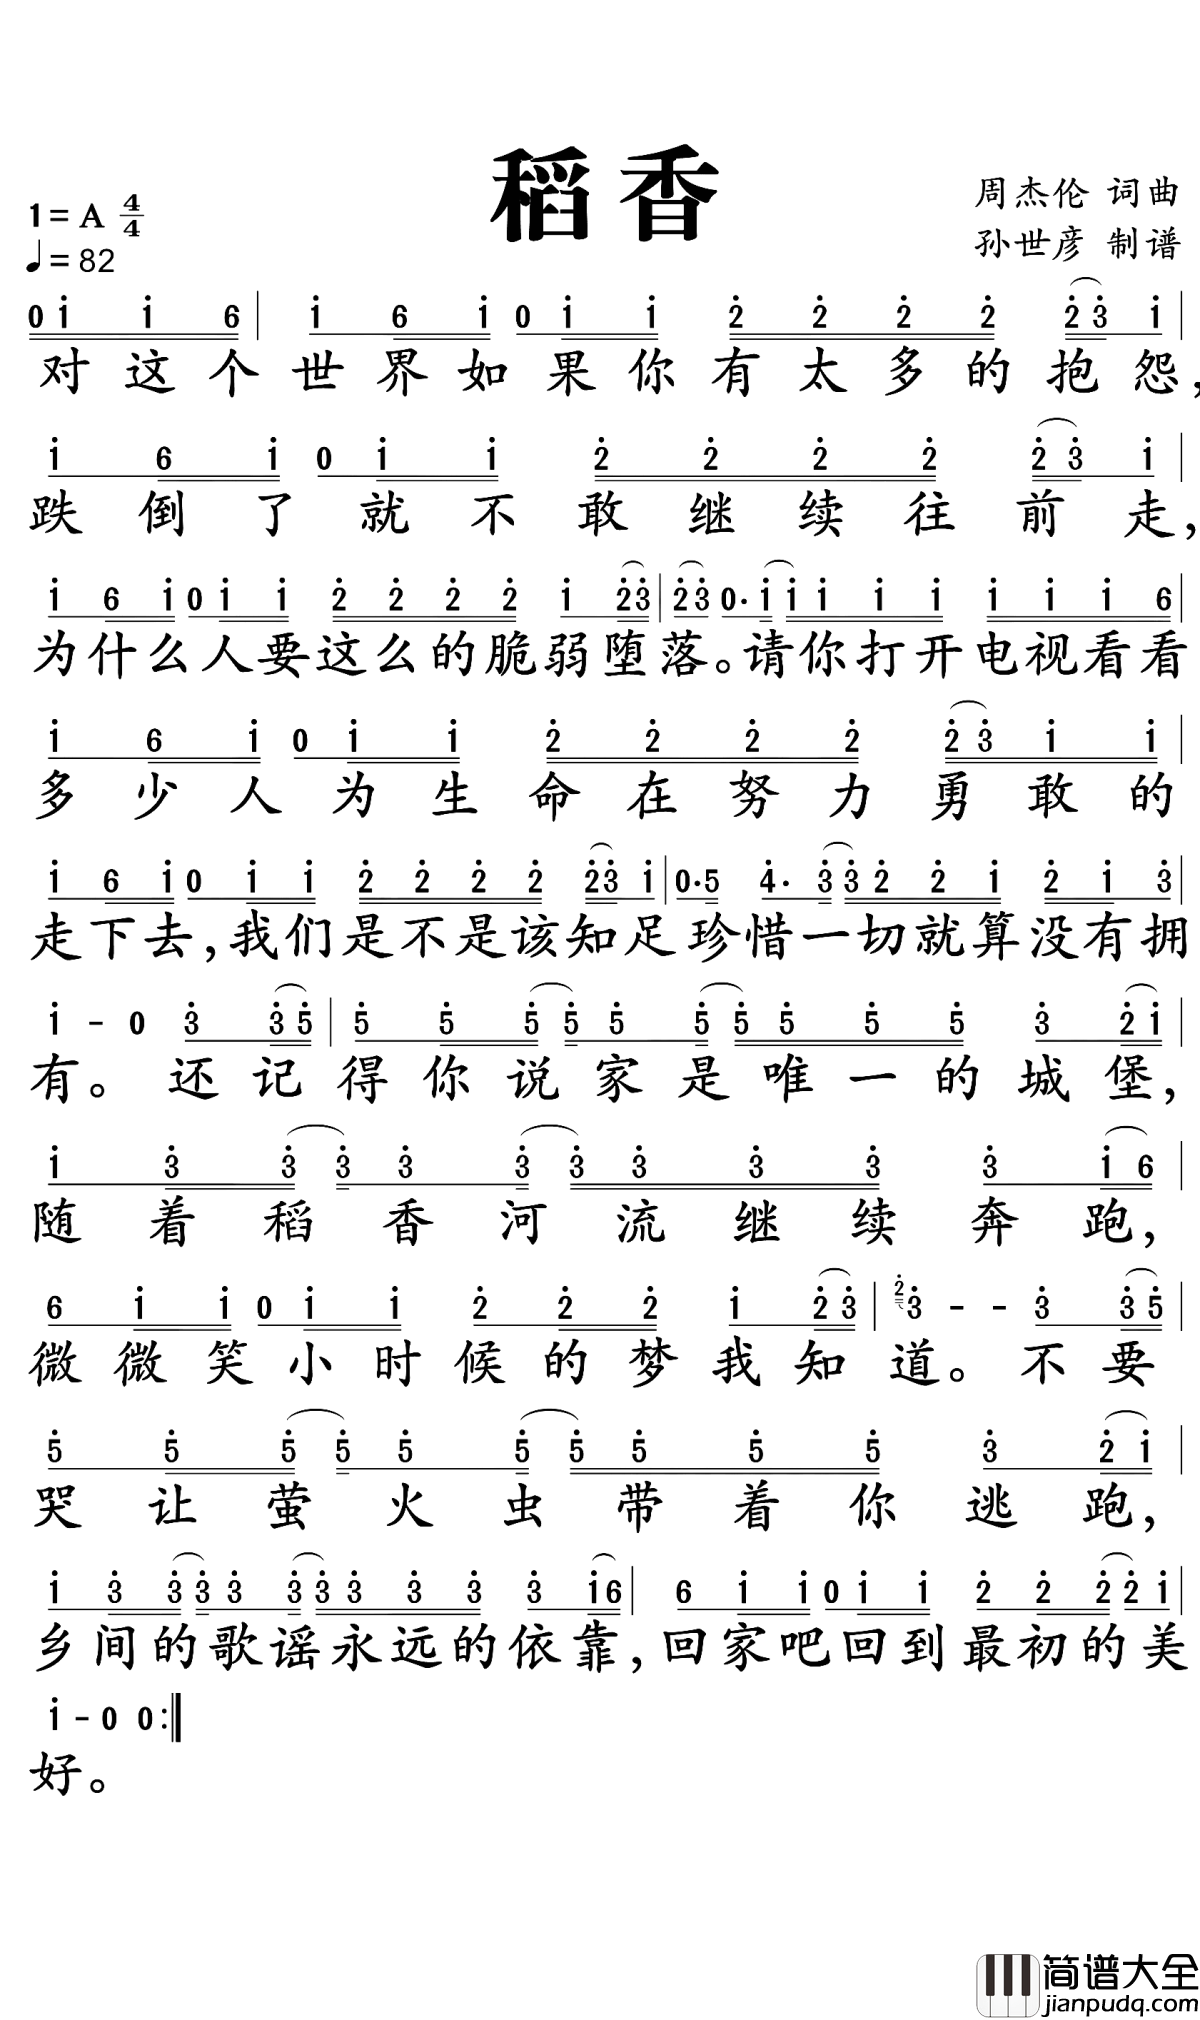 稻香
周杰伦 词曲
1=A 4/4
孙世彦 制谱
♩=82
0 1 1 6 | 1 6 1 0 1 1 2 2 2 2 2 3 1 |
对这个世界如果你有太多的抱怨,
1 6 1 0 1 1 2 2 2 2 2 3 1 |
跌倒了就不敢继续往前走,
1 6 1 0 1 1 2 2 2 2 1 2 3 | 2 3 0· 1 1 1 1 1 1 1 1 6 |
为什么人要这么的脆弱堕落。请你打开电视看看
1 6 1 0 1 1 2 2 2 2 2 3 1 1 |
多少人为生命在努力勇敢的
1 6 1 0 1 1 2 2 2 2 2 3 1 | 0· 5 4· 3 3 2 2 1 2 1 3 |
走下去,我们是不是该知足珍惜一切就算没有拥
1 - 0 3 3 5 | 5 5 5 5 5 5 5 5 5 5 3 2 1 |
有。还记得你说家是唯一的城堡,
1 3 3 3 3 3 3 3 3 3 3 1 6 |
随着稻香河流继续奔跑,
6 1 1 0 1 1 2 2 2 1 2 3 | 2 3 - - 3 3 5 |
微微笑小时候的梦我知道。不要
5 5 5 5 5 5 5 5 5 5 3 2 1 |
哭让萤火虫带着你逃跑,
1 3 3 3 3 3 3 3 3 3 3 1 6 | 6 1 1 0 1 1 2 2 2 2 1 |
乡间的歌谣永远的依靠,回家吧回到最初的美
1 - 0 0 :‖
好。
简谱大全
jianpudq.com